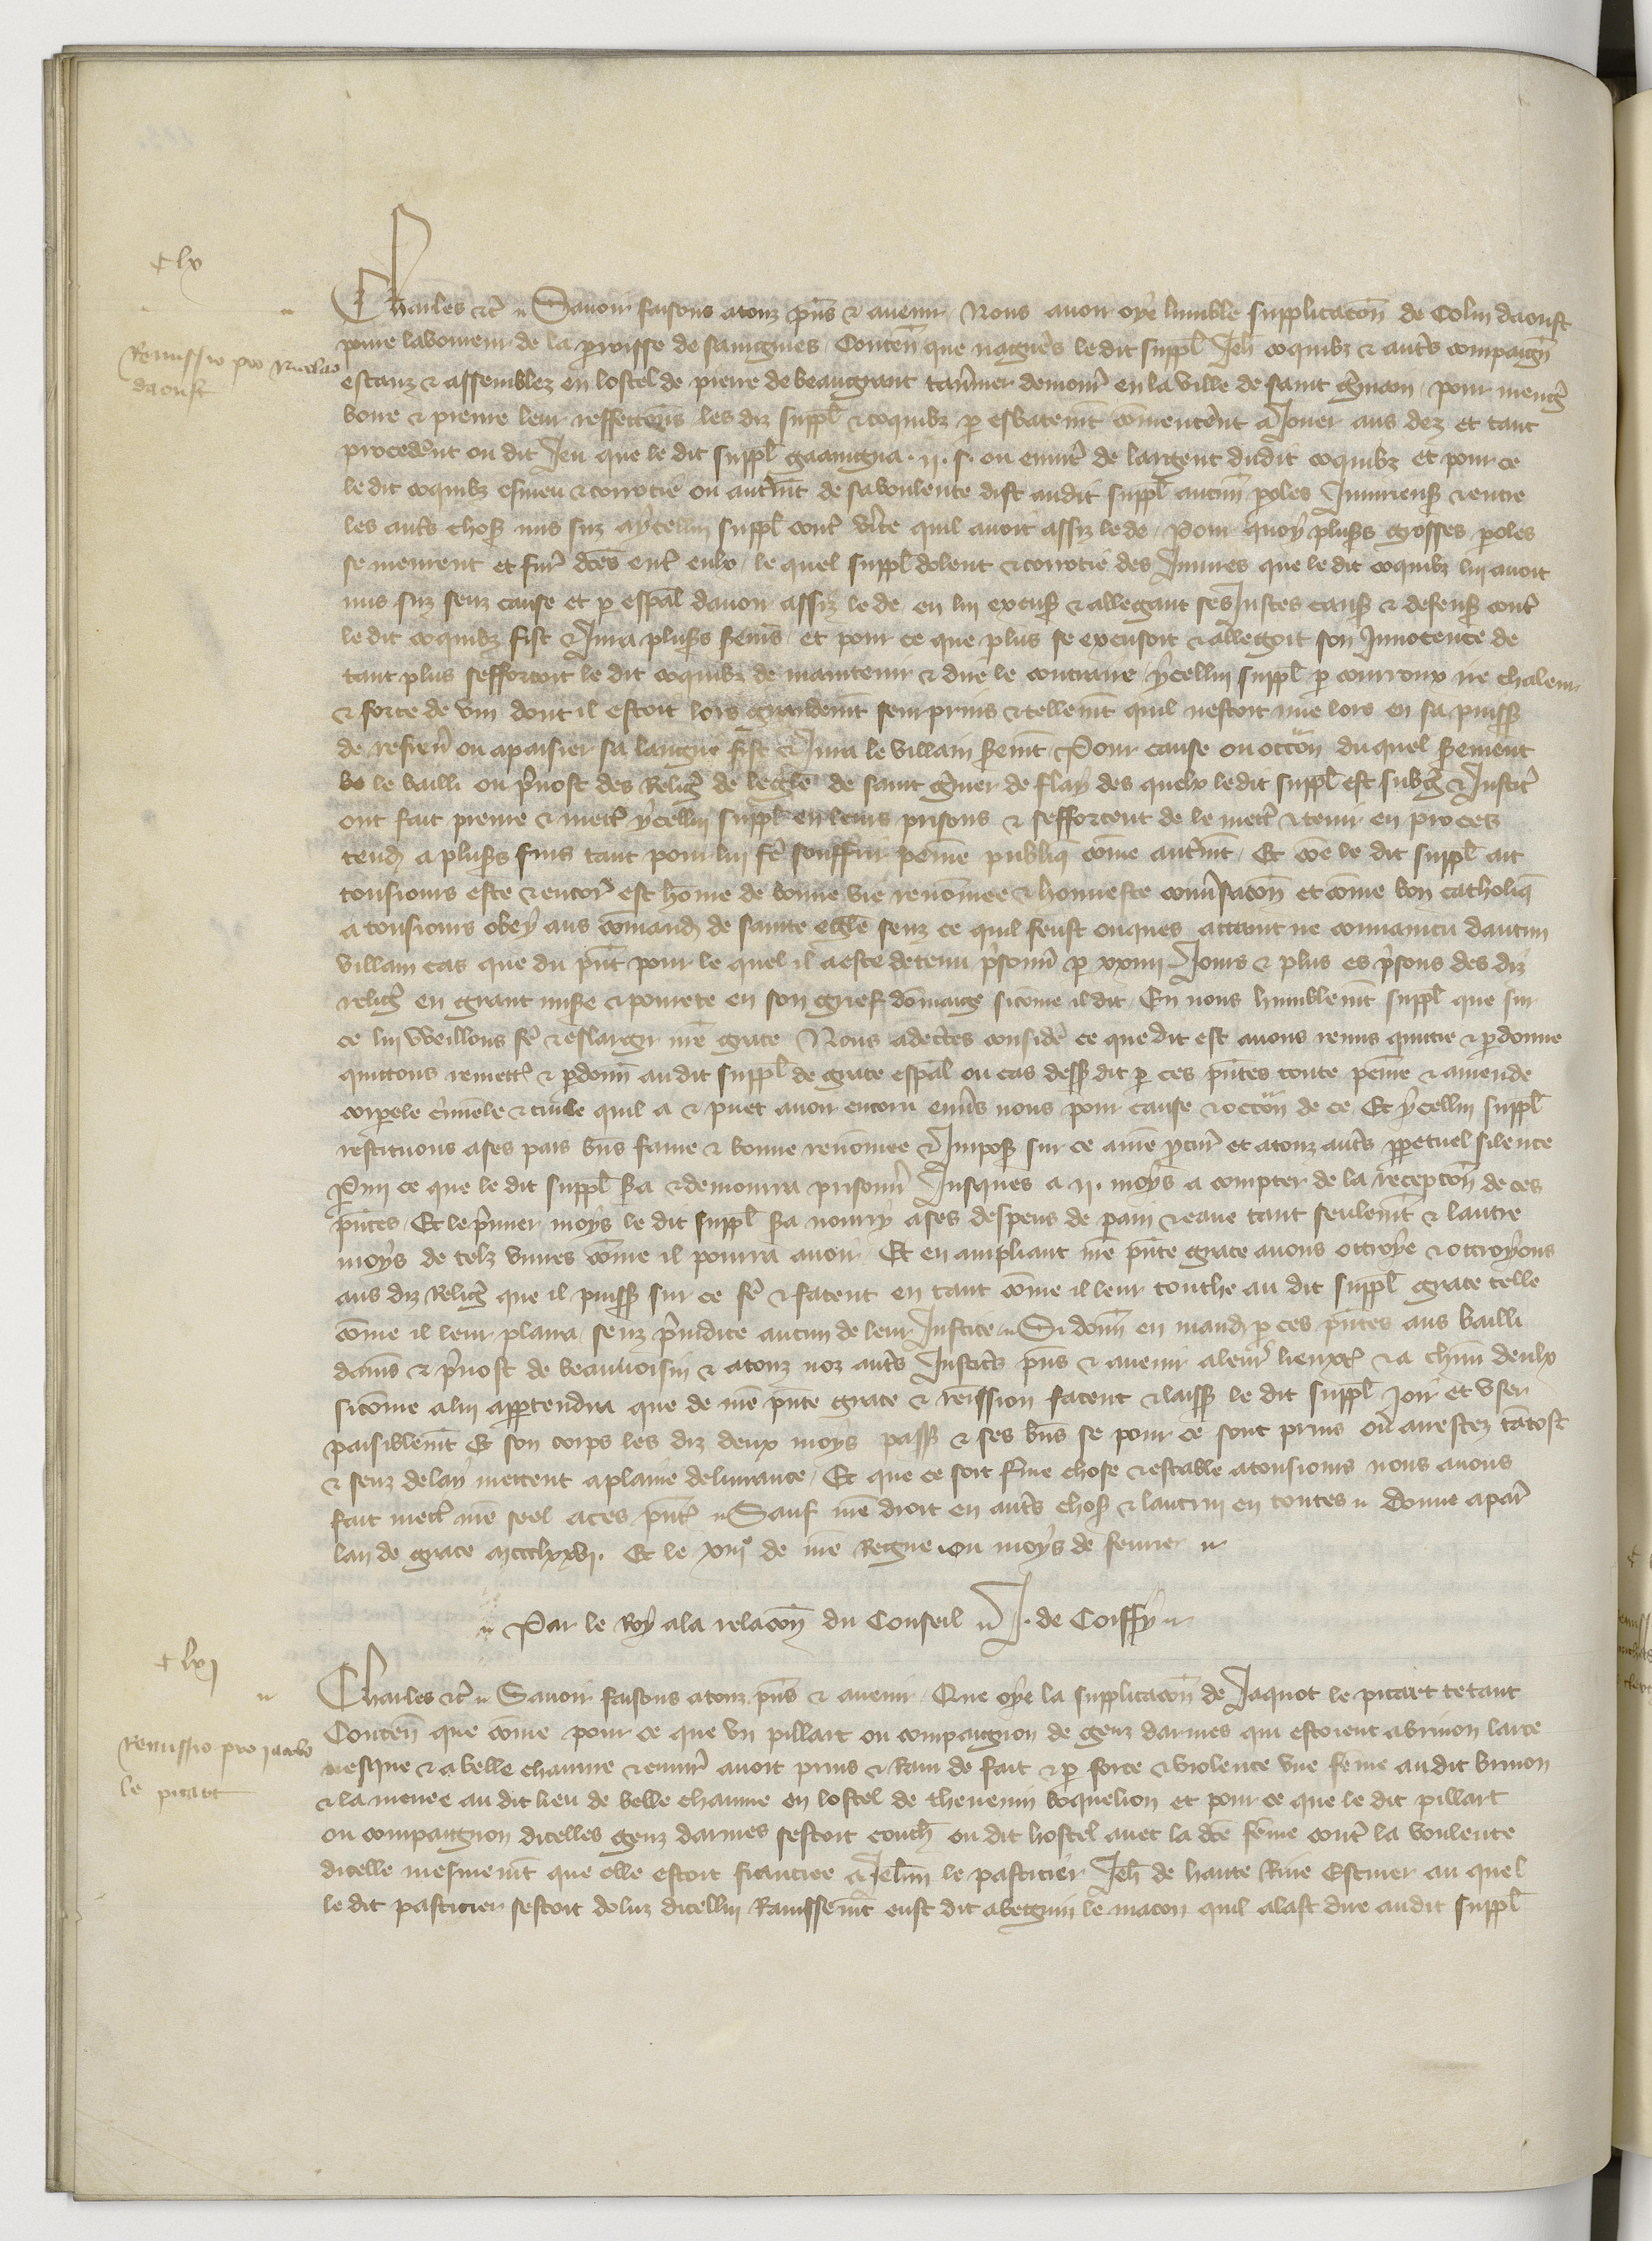 Clx
Remissio pro Nicolao
daoust
Charles etc̃ Sauoir faisons a touz pñs & auenir Nous auoir oye lumble supplicacõn de Colin daoust
poure laboureur de la parroisse de sauignies Conteñ que nagueres le dit suppl̃ Jeh̃ coquibz & autres compaign̄
estanz & assemblez en lostel de pierre de beaugrant tauernier demourant en la ville de saint germain pour mengier
boire & prenre leur reffeccions les diz suppl̃ & coquibz par esbatement commencerent a Jouer aus dez et tant
procederent ou dit Jeu que le dit suppl̃ gaaingna .ij. s. ou enuiron de largent dudit coquibz et pour ce
le dit coquibz esmeu & corrocie ou autrement de sa voulente dist audit suppl̃ aucunes paroles Iniurieuses & entre
les autres choses mis suz a ycellui suppl̃ contre verite quil auoit assiz le de Pour quoy pluseurs grosses paroles
se meurent et furent dictes entre eulx le quel suppl̃ dolent & corrocie des Iniures que le dit coquibz lui auoit
mis suz senz cause et par especial dauoir assiz le de en lui excusant & allegant ses Justes causes & defenses contre
le dit coquibz fist & Jura pluseurs seremens et pour ce que plus se excusoit & allegoit son Innocence de
tant plus sefforcoit le dit coquibz de maintenir & dire le contraire ycellui suppl̃ par courroux ire chaleur
& force de vin dont il estoit lors grandement seurprins & tellement quil nestoit mie lors en sa puissance
de refrener ou apaisier sa langue fist & Jura le villain serement Pour cause ou occasion du quel serement
le bailli ou preuost des Religieux de leglise de saint germer de flay des quelx le dit suppl̃ est subget & Justiciable
ont fait prenre & mettre ycellui suppl̃ en leurs prisons & sefforcent de le mettre & tenir en proces
tendans a pluseurs fins tant pour lui faire souffrir peinne publique comme autrement Et comme le dit suppl̃ ait
tousiours este & encores est homme de bonne vie renommee & honneste conuersacion et comme bon catholique
a tousiours obey aus commandemens de sainte eglise senz ce quil feust onques attaint ne conuaincu daucun
villain cas que du present pour le quel il a este detenu prisonnier par xxiiij Jours & plus es prisons des diz
religieux en grant misere & pourete en son grief dommaige sicomme il dit En nous humblement suppliant que sur
ce lui vueillons faire & eslargir nostre grace Nous adecertes considere ce que dit est auons remis quictie & pardonne
quittons remettons & pardonnons au dit suppl̃ de grace especial ou cas dessus dit par ces presentes toute peinne & amende
corporele criminele & ciuile quil a & puet auoir encouru enuers nous pour cause & occasion de ce Et ycellui suppl̃
restituons a ses pais biens fame & bonne renommee & Imposons sur ce a nostre procureur et a touz autres perpetuel silence
Parmi ce que le dit suppl̃ sera & demourra prisonnier Jusques a .ij. moys a compter de la recepcion de ces
presentes Et le premier moys le dit suppl̃ sera nourry a ses despens de pain & eaue tant seulement & lautre
moys de telz viures comme il pourra auoir Et en ampliant nostre presente grace auons ottroye & ottroyons
aus diz Religieux que il puissent sur ce faire & facent en tant comme il leur touche au dit suppl̃ grace telle
comme il leur plaira senz preiudice aucun de leur Justice Si donnons en mandement par ces presentes aus bailli
damiens & preuost de beauuoisin & a touz noz autres Justiciers presens & auenir a leurs lieuxten̄ & a chascun deulx
sicomme a lui appartendra que de nostre presente grace & remission facent & laissent le dit suppl̃ Joir et vser
paisiblement Et son corps les diz deux moys passez & ses biens se pour ce sont prins ou arrestez tantost
& senz delay mettent a plaine deliurance Et que ce soit ferme chose & estable a tousiours nous auons
fait mettre nostre seel a ces presentes Sauf nostre droit en autres choses & lautrui en toutes Donne a paris
lan de grace mccclxxvj. Et le xiij^e de nostre Regne ou moys de feurier
Par le Roy a la relacion du Conseil J. de Coiffy
Clxj
Remissio pro Jacobo
le picart
Charles etc̃ Sauoir faisons a touz pñs & auenir Que oye la supplicacõn de Jaquot le picart tetant
Conteñ que comme pour ce que vn pillart ou compaignon de genz darmes qui estoient a brinon larce
uesque & a belle chaume & enuiron auoit prins & Raui de fait & par force & violence vne femme au dit brinon
& la menee au dit lieu de belle chaume en lostel de theuenin boquelion et pour ce que le dit pillart
ou compaignon dicelles genz darmes sestoit couchie ou dit hostel auec la dicte femme contre la voulente
dicelle mesmement que elle estoit fiancee a Jehan le pasticier Jeh̃ de haute Riue Escuier au quel
le dit pasticier sestoit doluz dicellui Rauissement eust dit a beguin le macon quil alast dire au dit suppl̃